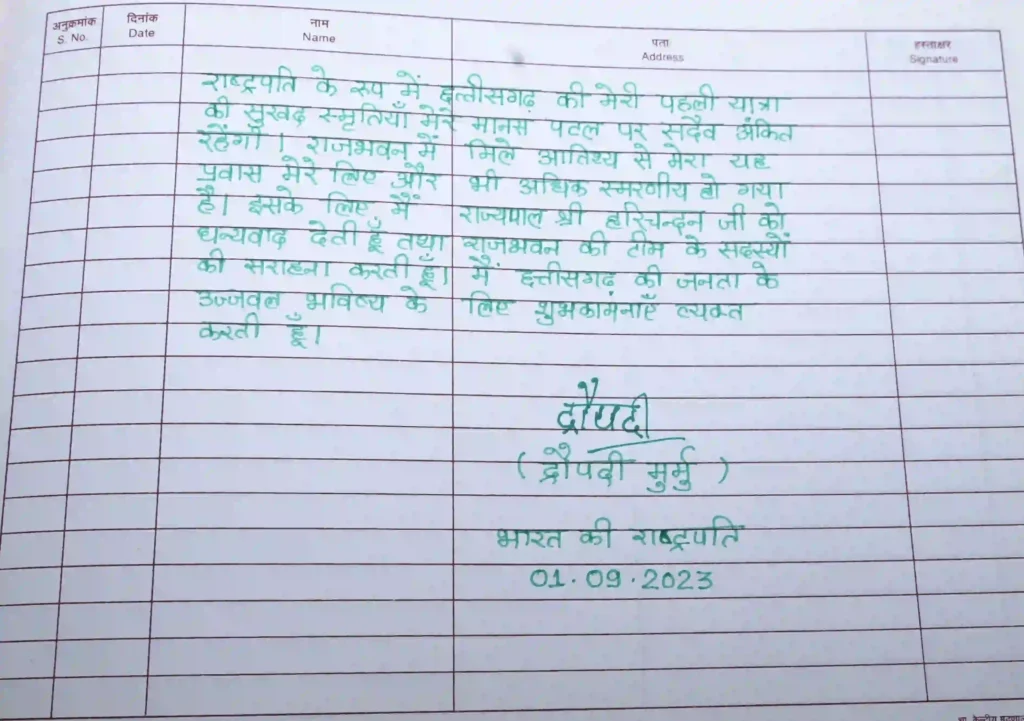 अनुक्रमांक
S. No.
दिनांक
Date
नाम
Name
पता
Address
हस्ताक्षर
Signature
राष्ट्रपति के रूप में छत्तीसगढ़ की मेरी पहली यात्रा
की सुखद स्मृतियाँ मेरे मानस पटल पर सदैव अंकित
रहेंगी। राजभवन में मिले आतिथ्य से मेरा यह
प्रवास मेरे लिए और भी अधिक स्मरणीय हो गया
है। इसके लिए मैं राज्यपाल श्री हरिचन्दन जी को
धन्यवाद देती हूँ तथा राजभवन की टीम के सदस्यों
की सराहना करती हूँ। मैं छत्तीसगढ़ की जनता के
उज्जवल भविष्य के लिए शुभकामनाएँ व्यक्त
करती हूँ।
द्रौपदी
( द्रौपदी मुर्मु )
भारत की राष्ट्रपति
01.09.2023